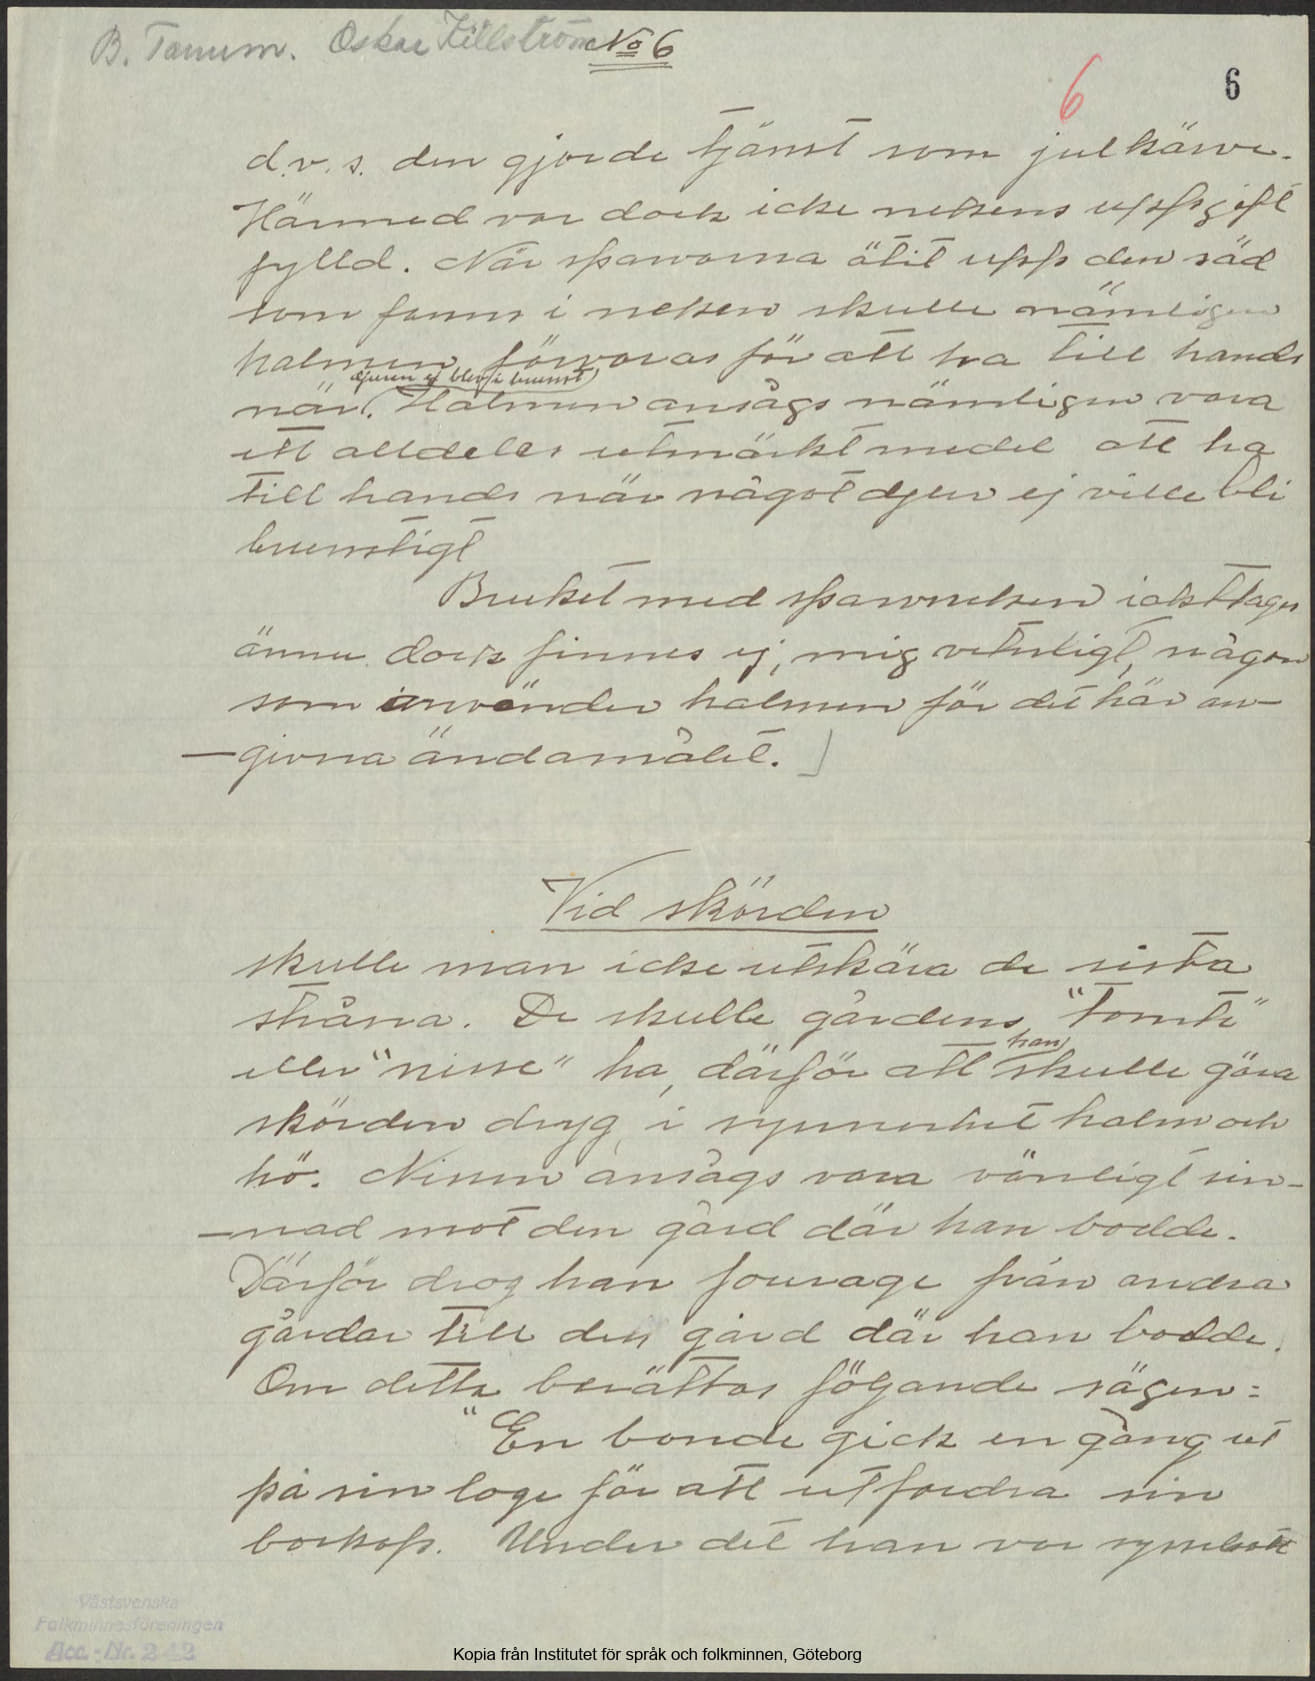 B. Tanum. Oskar Killström No 6
6 6
d.v.s. den gjorde tjänst som julkärve.
Härmed var dock icke nekens uppgift
fylld. När sparvarna ätit upp den säd
som fanns i neken skulle nämligen
halmen förvaras för att ha till hands
djuren ej blev i brunst
när. Halmen ansågs nämligen vara
ett alldeles utmärkt medel att ha
till hands när något djur ej ville bli
brunstigt
Bruket med sparvneken iakttages
ännu dock finnes ej, mig veterligt, någon
som använder halmen för det här an-
-givna ändamålet.
Vid skörden
skulle man icke utskära de sista
stråna. De skulle gårdens "tomte"
han
eller "nisse" ha, därför att skulle göra
skörden dryg, i synnerhet halm och
hö. Nissen ansågs vara vänligt sin-
-nad mot den gård där han bodde.
Därför drog han fourage från andra
gårdar till den gård där han bodde.
Om detta berättas följande sägen:
"En bonde gick en gång ut
på sin loge för att utfordra sin
boskap. Under det han var sysselsatt
Västsvenska
Folkminnesföreningen
Acc.-Nr. 242
Kopia från Institutet för språk och folkminnen, Göteborg